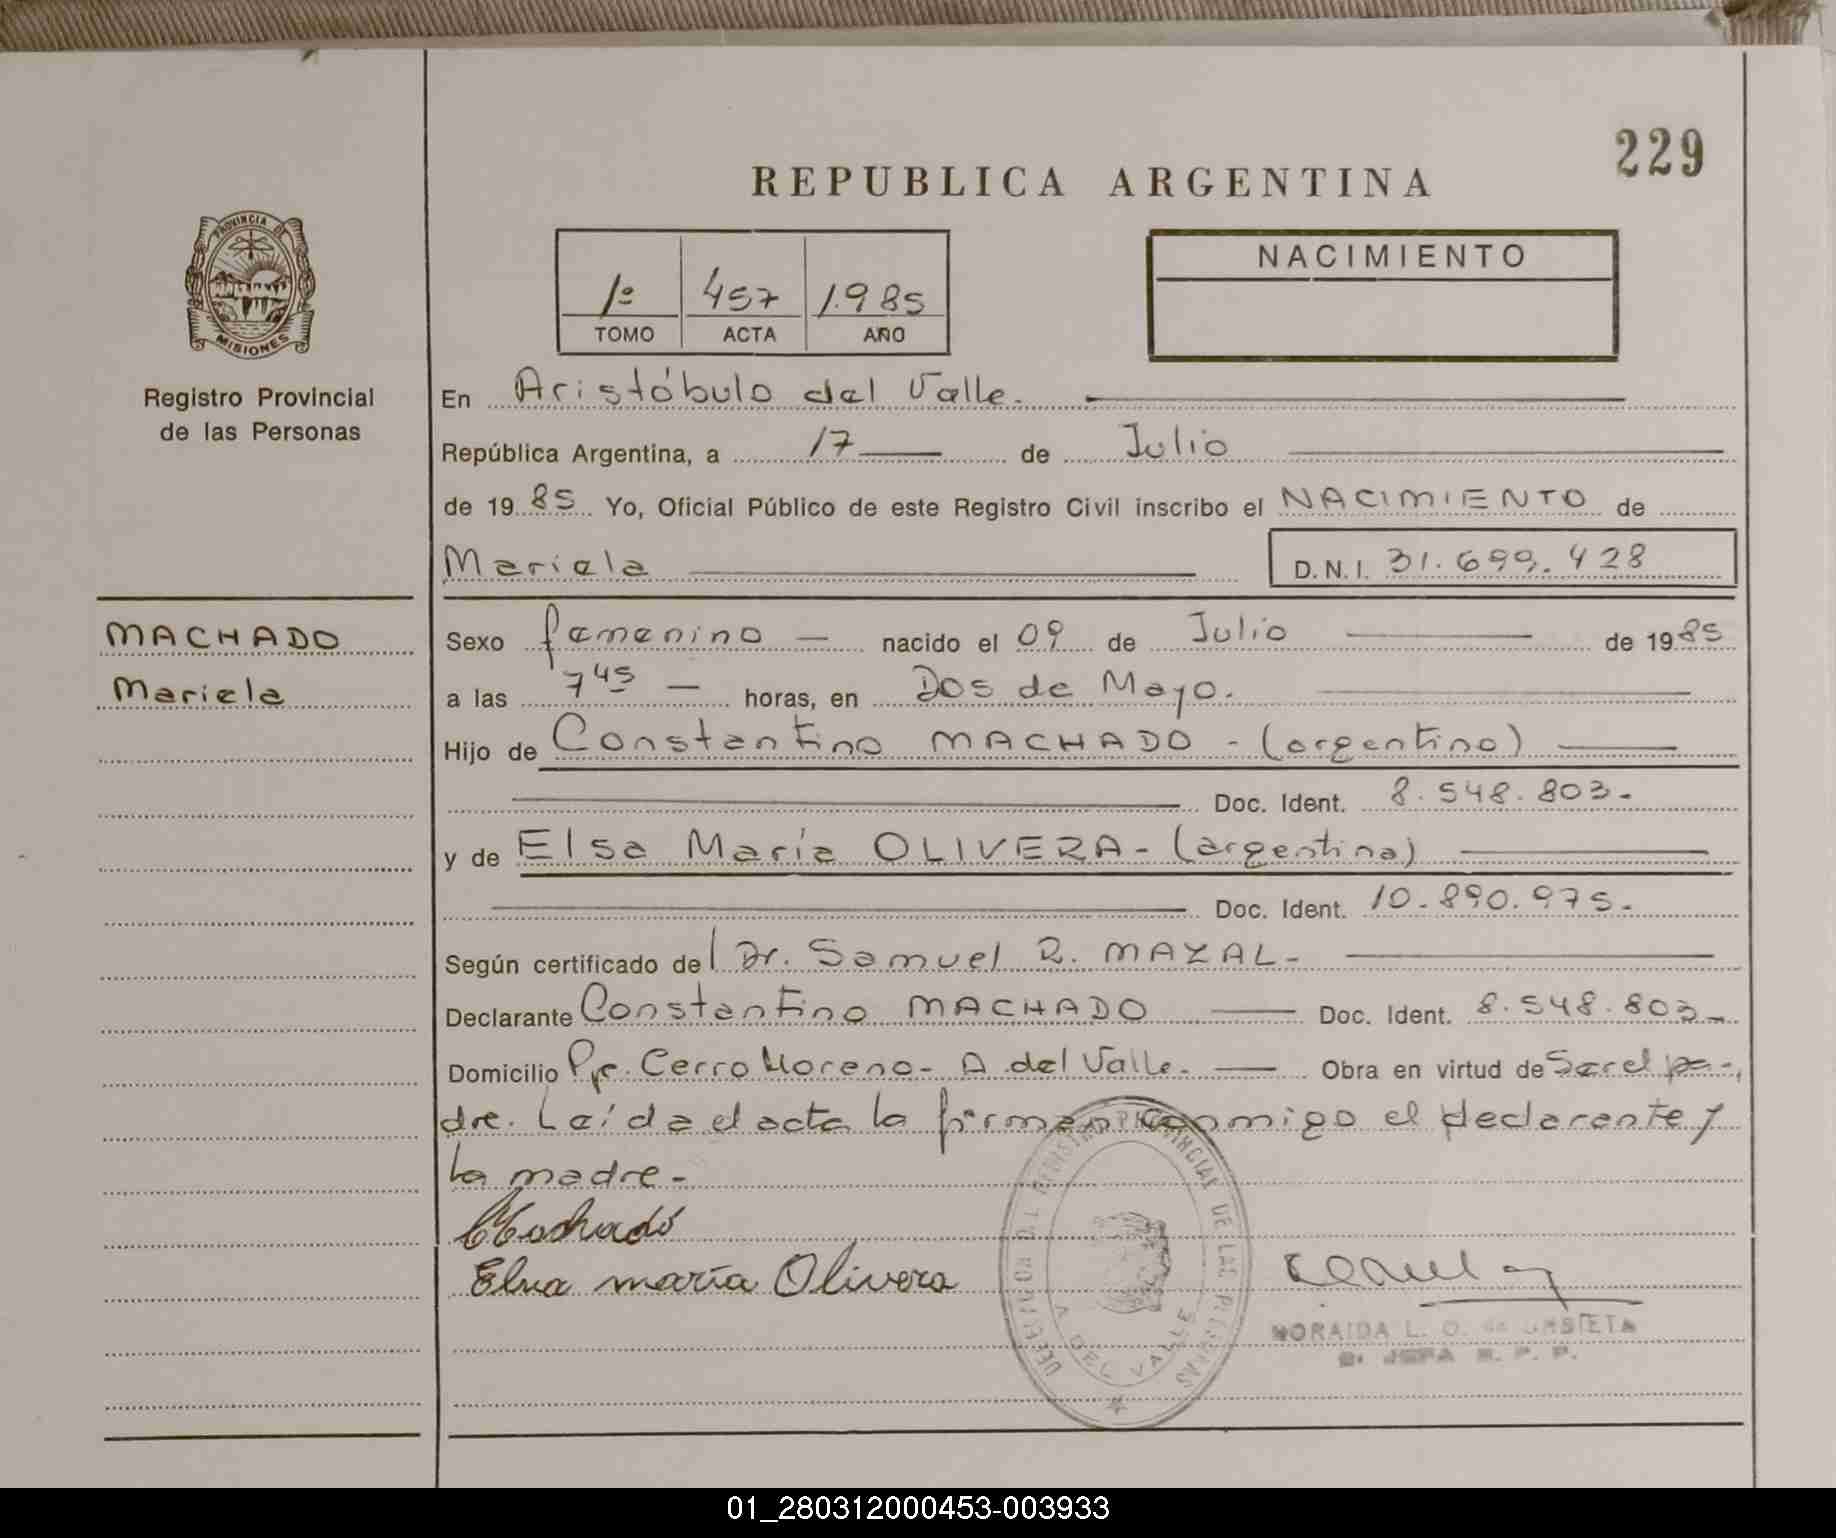 229
REPUBLICA ARGENTINA
PROVINCIA DE
MISIONES
Registro Provincial
de las Personas
1º 457 1.985
TOMO ACTA AÑO
NACIMIENTO
En Aristóbulo del Valle.
República Argentina, a 17 de Julio
de 1985 Yo, Oficial Público de este Registro Civil inscribo el NACIMIENTO de
Mariela D.N.I. 31.699.428
MACHADO
Mariela
Sexo femenino — nacido el 09 de Julio de 1985
a las 7 45 — horas, en Dos de Mayo.
Hijo de Constantino MACHADO - (argentino)
Doc. Ident. 8.548.803.-
y de Elsa María OLIVERA - (argentina)
Doc. Ident. 10.890.975.-
Según certificado del Dr. Samuel R. MAZAL -
Declarante Constantino MACHADO Doc. Ident. 8.548.803.-
Domicilio Cerro Moreno - A. del Valle. Obra en virtud de Ser el pa-
dre. Leída el acta la firman conmigo el declarante y
la madre.-
Machado
Elsa maría Olivera
REGISTRO PROVINCIAL DE LAS PERSONAS
A. DEL VALLE
NORAIDA L. O. de URBIETA
JEFA R. P. P.
01_280312000453-003933